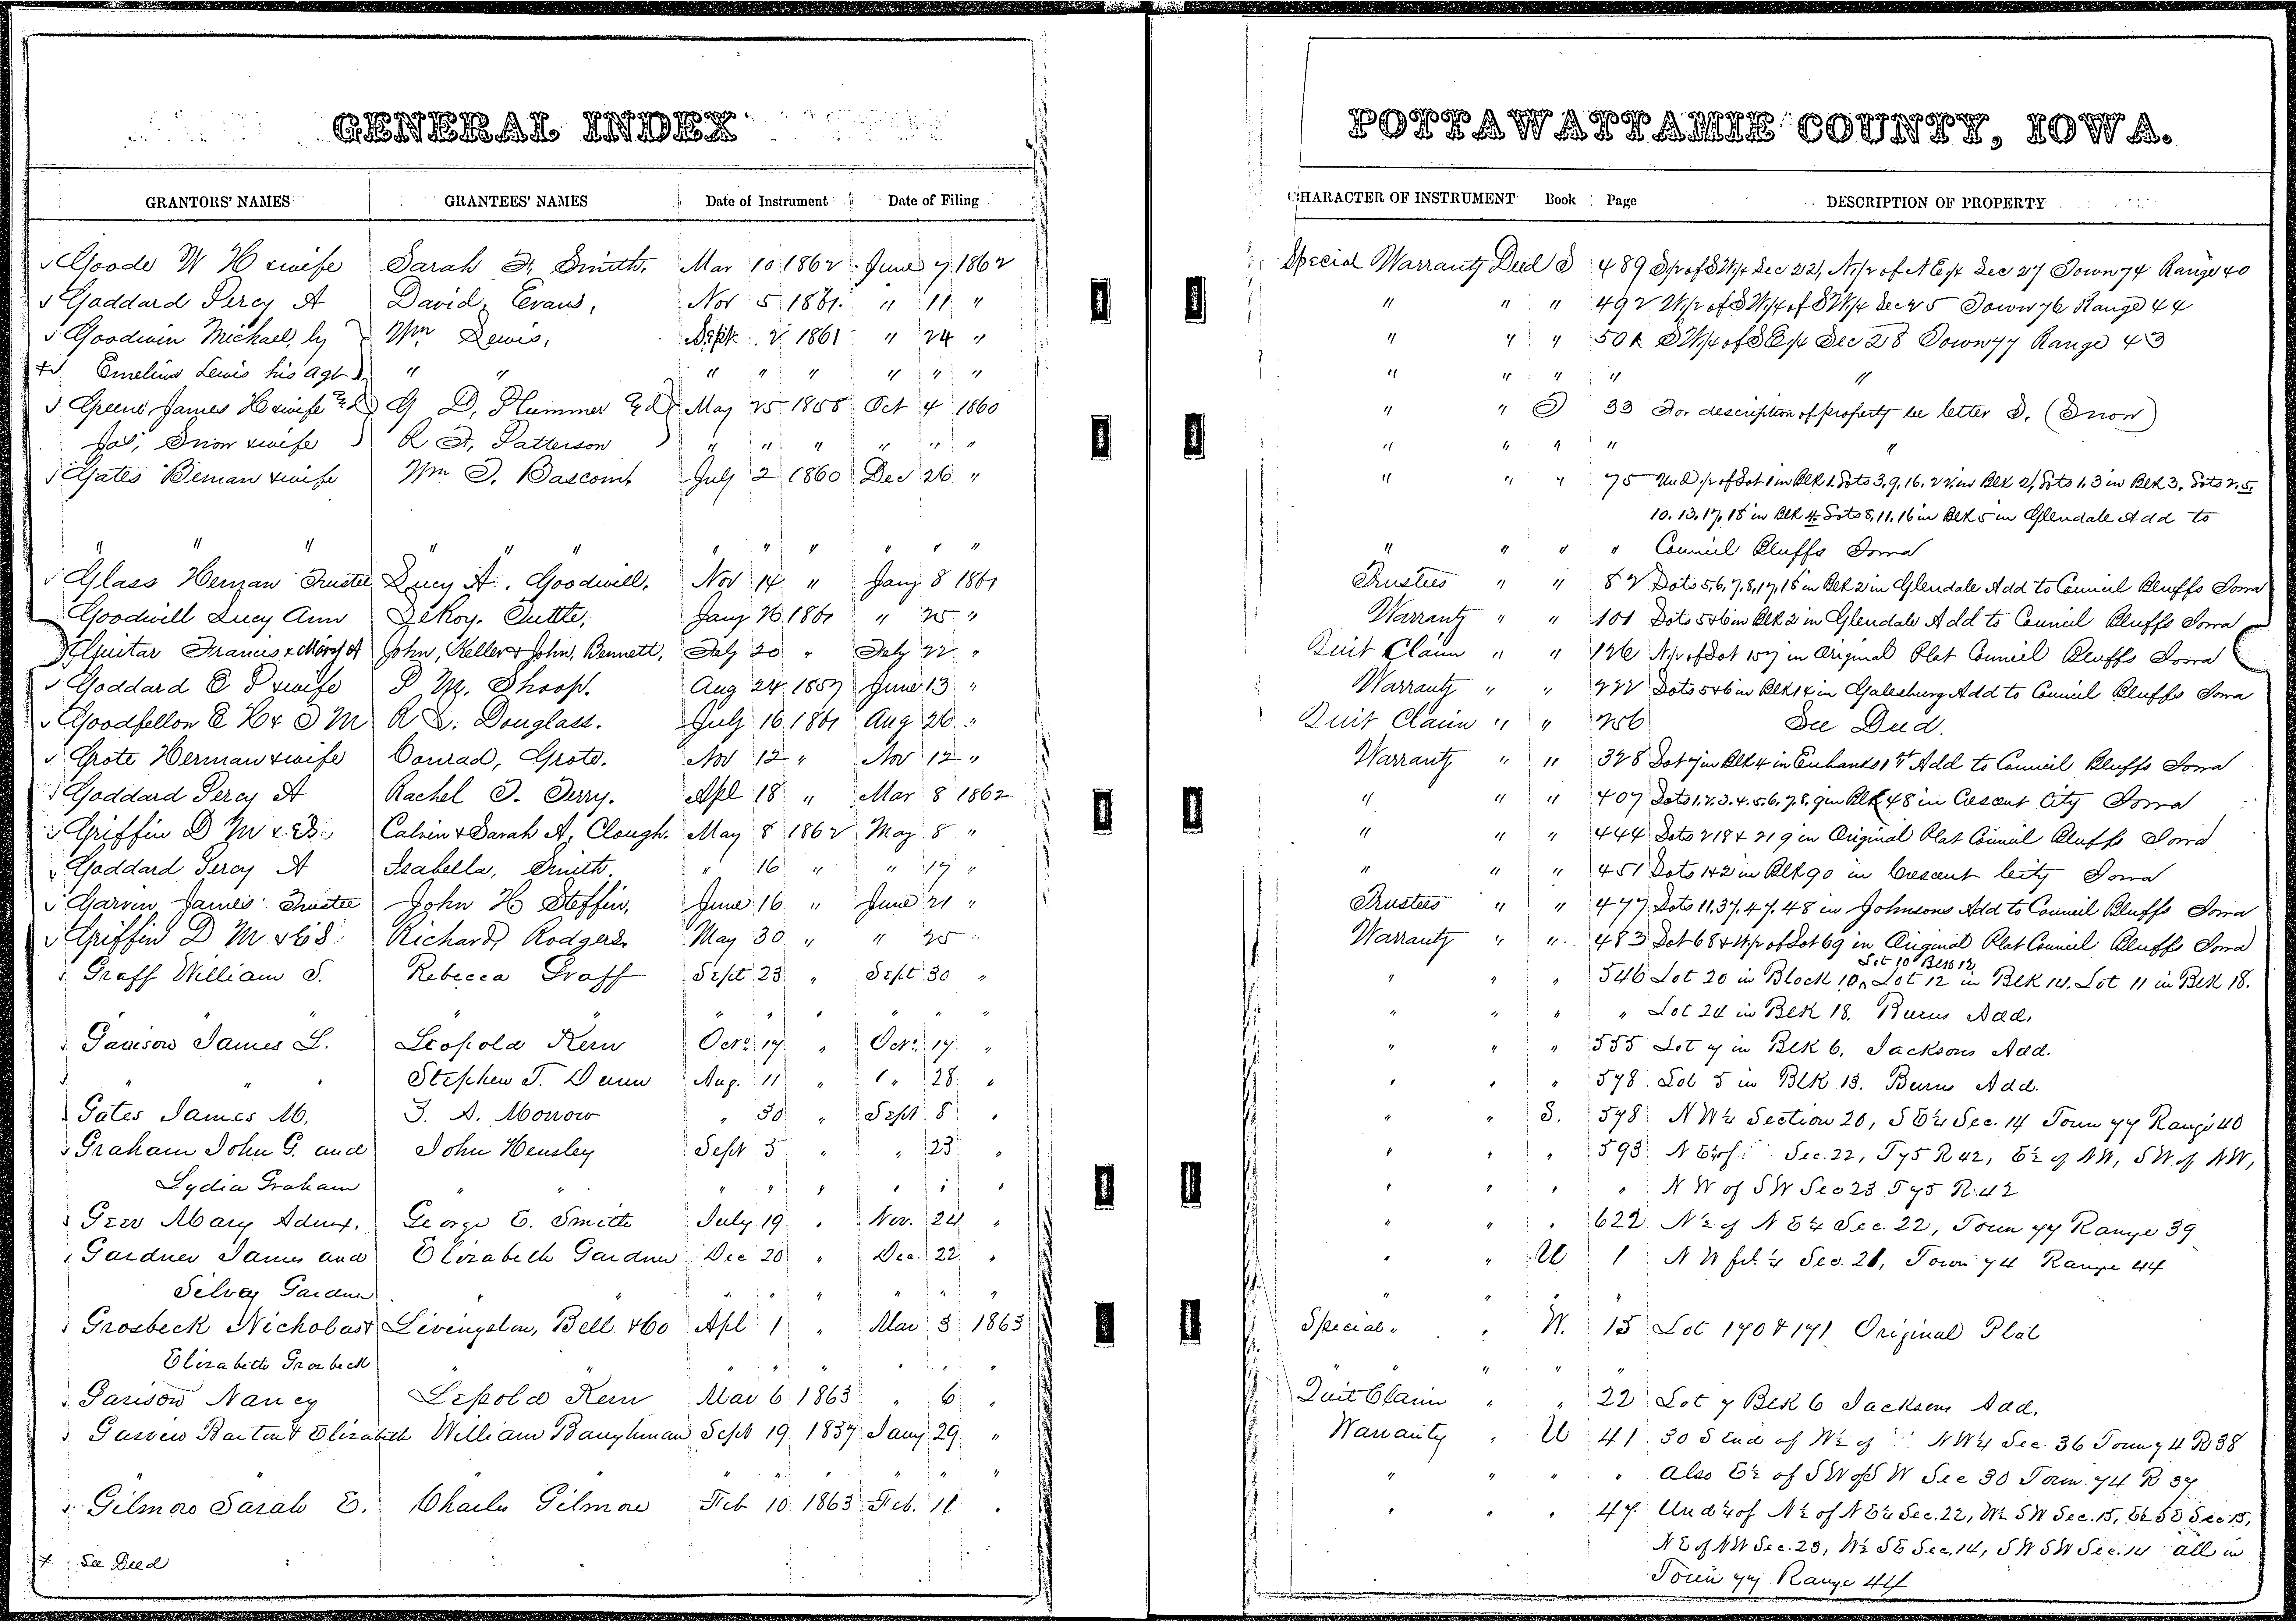 GENERAL INDEX
GRANTORS' NAMES GRANTEES' NAMES Date of Instrument Date of Filing
Goode W H & wife Sarah F. Smith. Mar 10 1862 June 7 1862
Goddard Percy A David, Evans, Nov 5 1861. " 11 "
Goodwin Michael, by Wm Lewis, Sept. 2 1861 " 24 "
Lewis his agt " " " " " " " "
Greene James H & wife G D, Plummer May 25 1858 Oct 4 1860
Jas; Snow & wife R F, Patterson " " " " " "
Gates Beman & wife Wm T. Bascom, July 2 1860 Dec 26 "
" " " " " " " " " " " "
Glass Herman Trustee Lucy A. Goodwill, Nov 14 " Jany 8 1861
Goodwill Lucy Ann LeRoy, Tuttle, Jany 16 1861 " 25 "
Guitar Francis & Mary A John, Keller & John, Bennett, July 20 " July 22 "
Goddard E P & wife P M. Shoop. Aug 24 1857 June 13 "
Goodfellow E H & S M R L. Douglass. July 16 1861 Aug 26 "
Grote Herman & wife Conrad, Grote. Nov 12 " Nov 12 "
Goddard Percy A Rachel T. Terry. Apl 18 " Mar 8 1862
Griffin D M & E S. Calvin & Sarah A, Clough. May 8 1862 May 8 "
Goddard Percy A Isabella, Smith. " 16 " " 17 "
Garvin James Trustee John H Steffin, June 16 " June 21 "
Griffin D M & E S. Richard, Rodgers. May 30 " " 25 "
Graff William S. Rebecca Graff Sept 23 " Sept 30 "
" " " " " "
Garison James L. Leopold Kern Oct. 17 " Oct. 17 "
" " " Stephen T. Dunn Aug. 11 " " 28 "
Gates James M. J. A. Morrow " 30 " Sept 8 "
Graham John G. and John Hensley Sept 5 " " 23 "
Lydia Graham " " " " " " " "
Geer Mary Admx. George E. Smith July 19 " Nov. 24 "
Gardner James and Elizabeth Gardner Dec 20 " Dec. 22 "
Silvey Gardner " " " " " " " "
Grosbeck Nicholas & Livingston, Bell & Co Apl 1 " Mar 3 1863
Elizabeth Grosbeck " " " " " "
Garison Nancy Lepold Kern Mar 6 1863 " 6 "
Barton & Elizabeth William Baughman Sept 19 1857 Jany 29 "
" " " " " "
Gilmore Sarah E. Charles Gilmore Feb 10 1863 Feb. 11 "
+ See Deed
POTTAWATTAMIE COUNTY, IOWA.
CHARACTER OF INSTRUMENT Book Page DESCRIPTION OF PROPERTY
Special Warranty Deed S 489 S½ of SW¼ Sec 22, N½ of NE¼ Sec 27 Town 74 Range 40
" " " 492 W½ of SW¼ of SW¼ Sec 25 Town 76 Range 44
" " " 501 SW¼ of SE¼ Sec 28 Town 77 Range 43
" " " " "
" " T 33 For description of property see letter S. (Snow)
" " " " "
" " " 75 Und ½ of Lot 1 in Blk 1. Lots 3, 9, 16, 22, in Blk 2, Lots 1, 3 in Blk 3. Lots 2, 5,
10. 13, 17, 18 in Blk 4. Lots 8, 11, 16 in Blk 5 in Glendale Add to
" " " " Council Bluffs Iowa
Trustees " " 82 Lots 5, 6, 7, 8, 17, 18 in Blk 2 in Glendale Add to Council Bluffs Iowa
Warranty " " 101 Lots 5 & 6 in Blk 2 in Glendale Add to Council Bluffs Iowa
Quit Claim " " 126 N½ of Lot 157 in Original Plat Council Bluffs Iowa
Warranty " " 222 Lots 5 & 6 in Blk 14 in Galesburg Add to Council Bluffs Iowa
Quit Claim " " 256 See Deed.
Warranty " " 328 Lot 7 in Blk 4 in Eubanks 1st Add to Council Bluffs Iowa
" " " 407 Lots 1. 2. 3. 4. 5. 6. 7. 8. 9 in Blk 48 in Crescent City Iowa
" " " 444 Lots 218 & 219 in Original Plat Council Bluffs Iowa
" " " 451 Lots 1 & 2 in Blk 90 in Crescent City Iowa
Trustees " " 477 Lots 11, 37, 47, 48 in Johnsons Add to Council Bluffs Iowa
Warranty " " 483 Lot 68 & W½ of Lot 69 in Original Plat Council Bluffs Iowa
Lot 10 Blk 12
" " " 546 Lot 20 in Block 10, Lot 12 in Blk 14, Lot 11 in Blk 18.
" " " " Lot 24 in Blk 18. Burns Add.
" " " 555 Lot 7 in Blk 6, Jacksons Add.
" " " 578 Lot 5 in Blk 13. Burns Add.
" " S. 598 NW¼ Section 20, SE¼ Sec. 14 Town 77 Range 40
" " " 593 Sec. 22, T75 R 42, E½ of NW, SW of NW,
" " " " NW of SW Sec 23 T75 R 42
" " " 622 N½ of NE¼ Sec. 22, Town 77 Range 39
" " U 1 NW frl ¼ Sec. 21, Town 74 Range 44
" " "
Special " " W. 15 Lot 170 & 171 Original Plat
" " "
Quit Claim " " 22 Lot 7 Blk 6 Jacksons Add.
Warranty " U 41 30 S End of W½ of NW¼ Sec. 36 Town 74 R 38
" " " " Also E½ of SW of SW Sec 30 Town 74 R 37
" " " 47 Und ¼ of N½ of NE¼ Sec. 22, W½ SW Sec. 15, E½ SE Sec 15,
NE of NW Sec. 23, W½ SE Sec. 14, SW SW Sec. 14 all in
Town 77 Range 44